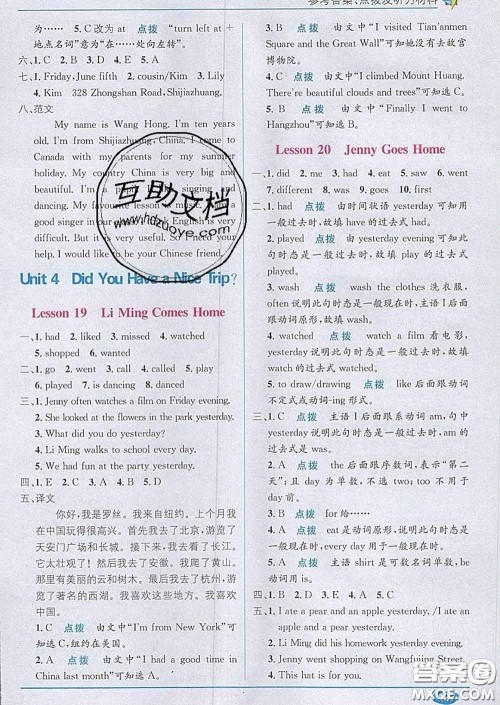 参考答案、点拨及听力材料
改为为 at 5. C 点拨 由文中“turn left at +
地点名词”意为“在……处向左转”。
六、1. C 2. B 3. D 4. E 5. A
七、1. Friday, June fifth 2. cousin/Kim 3. Lily
4. Kim 328 Zhongshan Road, Shijiazhuang,
八、范文
My name is Wang Hong. I'm ten years
old. I'm from Shijiazhuang, China. I come to
Canada with my parents for my summer
holiday. My country China is very big and
beautiful. singing and
dancing. My
good singer in our English is very
useful. But it is very useful. So I need your
help. I would like to be your Chinese friend.
Unit 4 Did You Have a Nice Trip?
Lesson 19 Li Ming Comes Home
一、1. had 2. liked 3. missed 4. watched
5. shopped 6. wanted
二、1. go 2. went 3. call 4. called 5. watched
6. played 7. is dancing 8. danced
三、1. Jenny often watches a film on Friday evening.
2. She looked at the flowers in the park yesterday.
3. What did you do yesterday?
4. Li Ming walks to school every day.
5. We had fun at the party yesterday.
四、1. E 2. D 3. A 4. B 5. C
五、译文
你好,我是罗丝。我来自纽约。上个月我
在中国玩得很高兴。首先我去了北京,游览了
天安门广场和长城。接下来,我去看了长江。
它太壮观了!然后,我爬了黄山。我看见了那
里有美丽的云和树木。最后我去了杭州,游
览了著名的西湖。我喜欢这些地方。
1. C 点拨 由文中“I'm from New York”可
知选C,纽约在美国。
2. A 点拨 由文中“I had a good time in
China last month”可知选 A。
3. B 点拨 由文中“I visited Tian'anmen
Square and the Great Wall”可知她没有去故宫
博物院。
4. C 点拨 由文中“I climbed Mount Huang.
There are beautiful clouds and trees”可知选 C。
5. B 点拨 由文中“Finally I went to
Hangzhou”可知选 B。
Lesson 20 Jenny Goes Home
一、1. did 2. me 3. had 4. eat 5. saw 6. went
7. different 8. was 9. goes 10. first
二、1. had 点拨 由时间状语 yesterday 可知
用一般过去时,故填 have 的过去式 had。
2. played 点拨 由 yesterday evening 可知
此句时态是一般过去时,故填 play 的过去式
played。
3. wash 点拨 wash the clothes 洗衣服,
often 说明此句时态是一般现在时,主语 I 后
面跟动词原形,故填 wash。
4. watched 点拨 watch a film 看电影,
yesterday evening 说明此句时态是一般过去
时,故填 watch 的过去式 watched。
5. to draw/drawing 点拨 like 后面跟动词不
定式或动词-ing 形式。
三、1. C 点拨 主语 I 后面跟系动词 am,句中
yesterday 说明此句时态是一般过去时,am 的
过去式是 was。
2. A 点拨 the 后面跟序数词,表示“第二
天”;且 day 为单数,不选 two。故选 A。
3. B 点拨 for 给……
4. A 点拨 eat 是动词原形,说明此句时态是
一般现在时,every day 用于一般现在时。
5. B 点拨 this shirt 是可数名词单数,be
动词用 is。
四、1. B 2. C 3. A 4. D 5. E
五、1. I ate a pear and an apple yesterday. /I ate
an apple and a pear yesterday.
2. Li Ming did his homework yesterday evening.
3. Jenny went shopping on Wangfujing Street.
4. This hat is for you.
5.